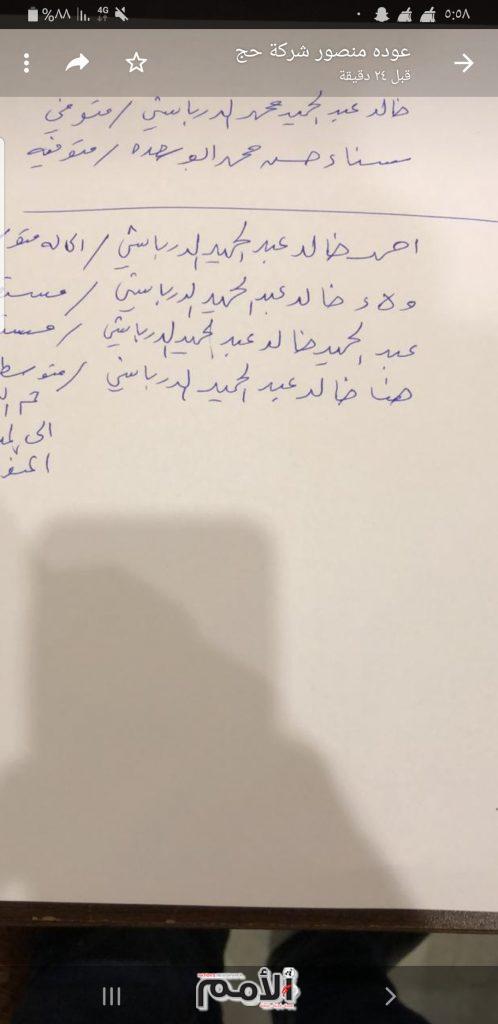 ٥:٥٨
4G
%٨٨
عوده منصور شركة حج
قبل ٢٤ دقيقة
خالد عبد الحميد محمد الدرباشي / متوفي
سناء حسن محمد ابو سعده / متوفيه
احمد خالد عبد الحميد الدرباشي / الحاله
ولاء خالد عبد الحميد الدرباشي /
عبد الحميد خالد عبد الحميد الدرباشي /
هنا خالد عبد الحميد الدرباشي / متوسط
ثم
الى
الأمم